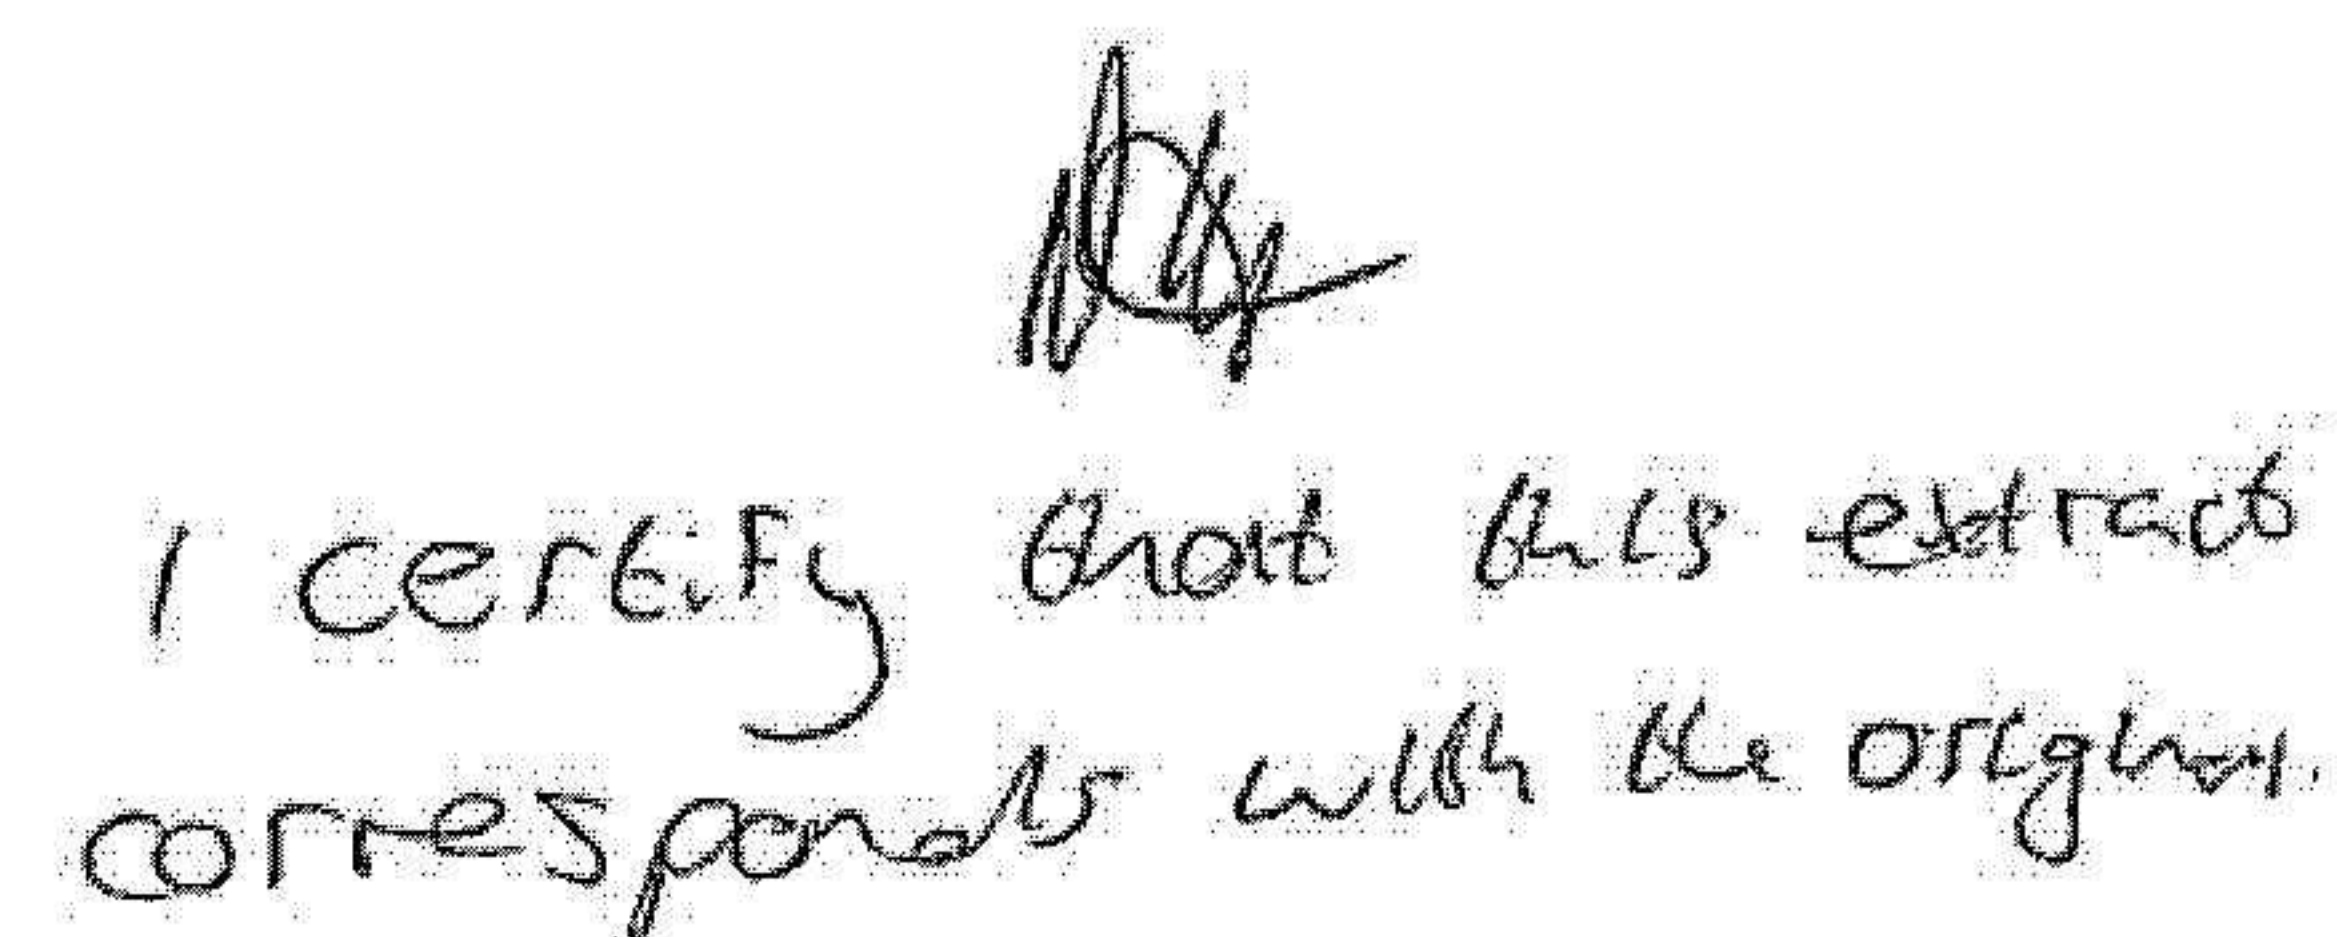 I certify that this extract
corresponds with the original.